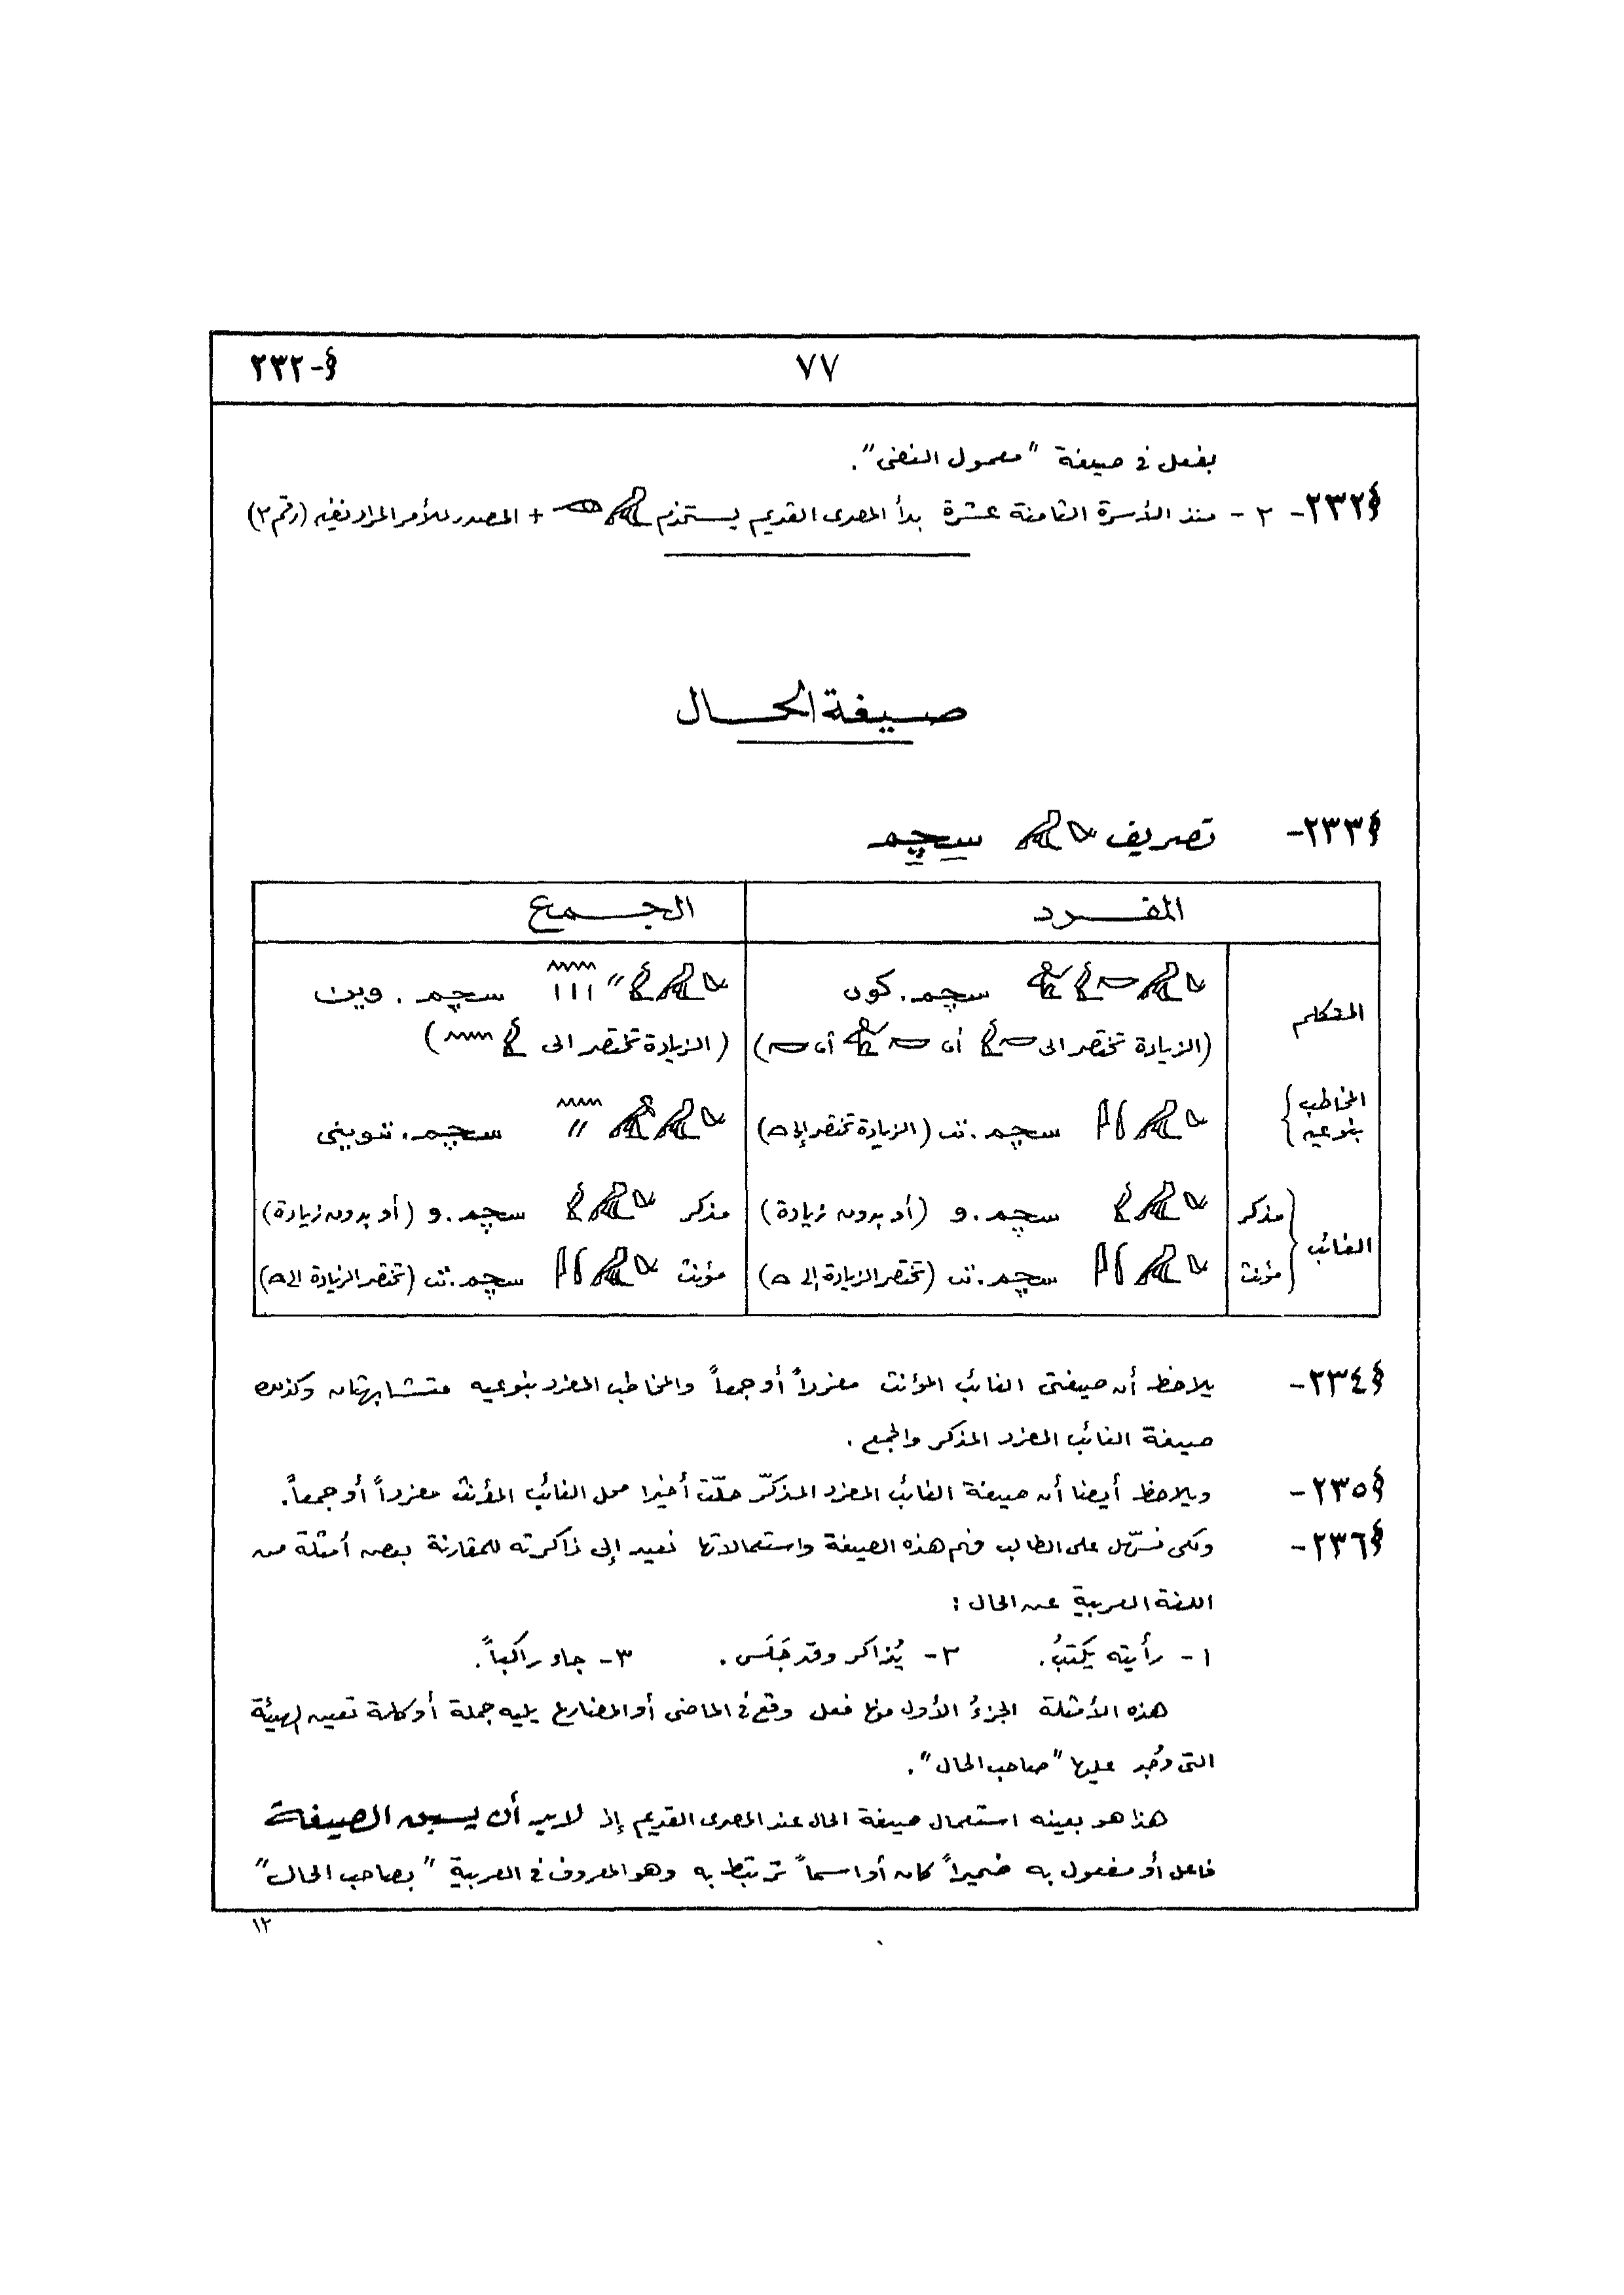 §-٢٣٢ ٧٧
بفعل فى صيغة "معمول النفى".
§٢٣٢- ٢- منذ الأسرة الثامنة عشرة بدأ المصرى القديم يستخدم 𓅓𓂋 + المصدر للأمر المراد نفيه (رقم ٢)
صيغة الحال
§٢٣٣- تصريف 𓄔𓅓 سچم
المفرد الجمع
المتكلم 𓄔𓅓𓎡𓅱𓀀 سچم.كون 𓄔𓅓𓅱𓏭𓈖𓏥 سچم.وين
(الزيادة تختصر الى 𓎡𓅱 أى 𓎡𓀀 أى 𓎡) (الزيادة تختصر الى 𓅱𓈖)
المخاطب بنوعيه سچم.تى (الزيادة تختصر إلى 𓏏) سچم.تيوينى
الغائب مذكر سچم.و (أو بدون زيادة) مذكر سچم.و (أو بدون زيادة)
مؤنث سچم.تى (تختصر الزيادة إلى 𓏏) مؤنث سچم.تى (تختصر الزيادة الى 𓏏)
§٢٣٤- يلاحظ أن صيغتى الغائب المؤنث مفرداً أو جمعاً والمخاطب المفرد بنوعيه متشابهتان وكذلك
صيغة الغائب المفرد المذكر والجمع .
§٢٣٥- ويلاحظ أيضا أن صيغة الغائب المفرد المذكّر حلّت أخيرا محل الغائب المؤنث مفرداً أو جمعاً.
§٢٣٦- ولكى نسهّل على الطالب فهم هذه الصيغة واستعمالاتها نعيد إلى ذاكرته للمقارنة بعض أمثلة من
اللغة العربية عن الحال :
١- رأيته يكتبُ. ٢- يُذاكر وقد جَلَس . ٣- جاء راكباً.
هذه الأمثلة الجزءُ الأول منها فعل وقع فى الماضى أو المضارع يليه جملة أو كلمة تعين الهيئة
التى وُجد عليها "صاحب الحال".
هذا هو بعينه استعمال صيغة الحال عند المصرى القديم إذ لابد أن يسبق الصيغة
فاعل أو مفعول به ضميراً كان أو اسماً ترتبط به وهو المعروف فى العربية "بصاحب الحال"
١٢